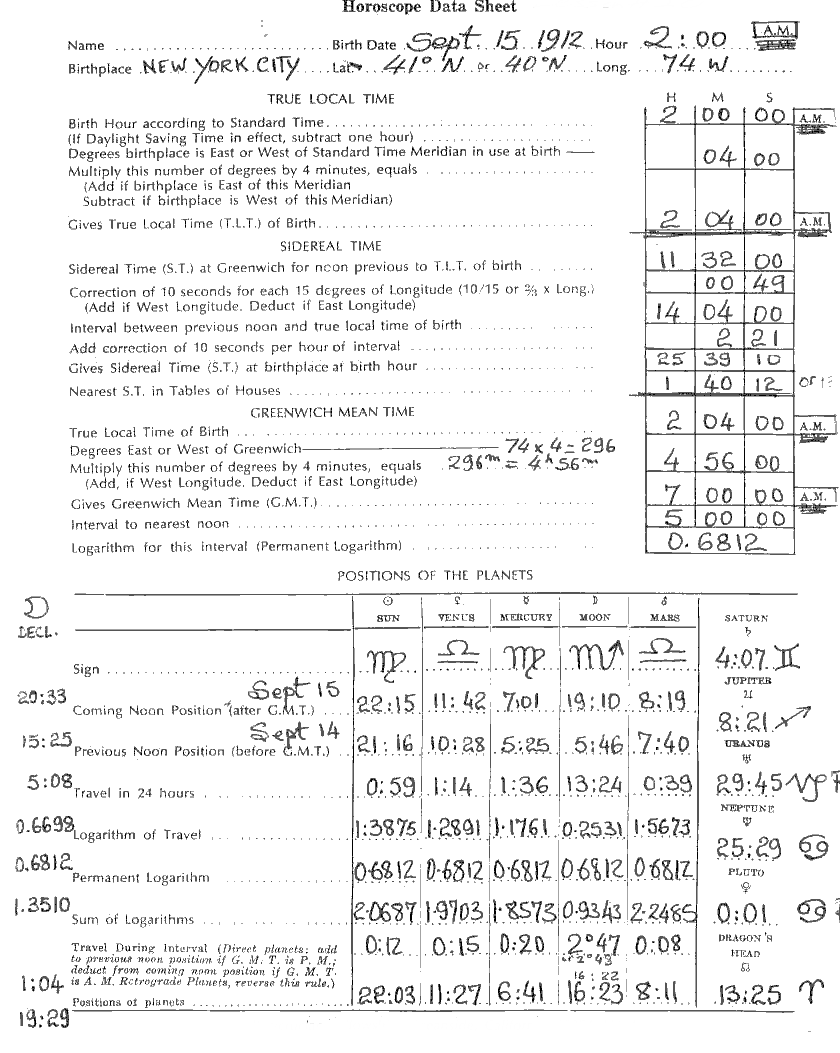 Horoscope Data Sheet
Name Birth Date Sept. 15 1912 Hour 2:00 A.M.
Birthplace NEW YORK CITY Lat. 41° N or 40° N Long. 74 W
TRUE LOCAL TIME H M S
Birth Hour according to Standard Time 2 00 00 A.M.
(If Daylight Saving Time in effect, subtract one hour)
Degrees birthplace is East or West of Standard Time Meridian in use at birth
Multiply this number of degrees by 4 minutes, equals 04 00
(Add if birthplace is East of this Meridian
Subtract if birthplace is West of this Meridian)
Gives True Local Time (T.L.T.) of Birth 2 04 00 A.M.
SIDEREAL TIME
Sidereal Time (S.T.) at Greenwich for noon previous to T.L.T. of birth 11 32 00
Correction of 10 seconds for each 15 degrees of Longitude (10/15 or ⅔ x Long.) 00 49
(Add if West Longitude. Deduct if East Longitude)
Interval between previous noon and true local time of birth 14 04 00
Add correction of 10 seconds per hour of interval 2 21
Gives Sidereal Time (S.T.) at birthplace at birth hour 25 39 10
Nearest S.T. in Tables of Houses 1 40 12 or
GREENWICH MEAN TIME
True Local Time of Birth 2 04 00 A.M.
Degrees East or West of Greenwich 74 x 4 = 296
Multiply this number of degrees by 4 minutes, equals 296m = 4h 56m 4 56 00
(Add, if West Longitude. Deduct if East Longitude)
Gives Greenwich Mean Time (G.M.T.) 7 00 00 A.M.
Interval to nearest noon 5 00 00
Logarithm for this interval (Permanent Logarithm) 0.6812
POSITIONS OF THE PLANETS
☽ DECL.
☉ ♀ ☿ ☽ ♂
SUN VENUS MERCURY MOON MARS SATURN ♄
Sign ♍ ♎ ♍ ♏ ♎ 4:07 ♊
JUPITER ♃
20:33 Coming Noon Position (after G.M.T.) Sept 15 22:15 11:42 7:01 19:10 8:19 8:21 ♐
URANUS ♅
15:25 Previous Noon Position (before G.M.T.) Sept 14 21:16 10:28 5:25 5:46 7:40
5:08 Travel in 24 hours 0:59 1:14 1:36 13:24 0:39 29:45 ♑ R
NEPTUNE ♆
0.6698 Logarithm of Travel 1.3875 1.2891 1.1761 0.2531 1.5673 25:29 ♋
0.6812 Permanent Logarithm 0.6812 0.6812 0.6812 0.6812 0.6812
PLUTO
1.3510 Sum of Logarithms 2.0687 1.9703 1.8573 0.9343 2.2485 0:01 ♋
Travel During Interval (Direct planets: add 0:12 0:15 0:20 2°47 0:08 DRAGON'S
to previous noon position if G. M. T. is P. M.; or 2°43 HEAD
deduct from coming noon position if G. M. T. ☊
1:04 is A. M. Retrograde Planets, reverse this rule.) 16:22
Positions of planets 22:03 11:27 6:41 16:23 8:11 13:25 ♈
19:29